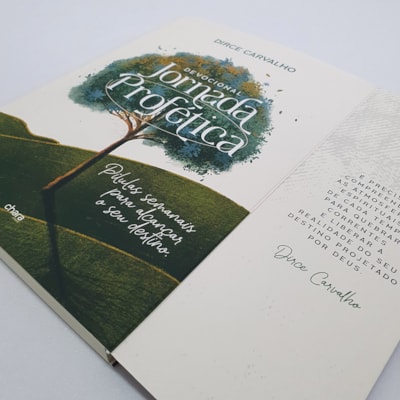 DIRCE CARVALHO
DEVOCIONAL
Jornada
Profética
Pílulas semanais
para alcançar
o seu destino.
chara
É PRECISO
COMPREENDER
AS ATMOSFERAS
ESPIRITUAIS
DE CADA TEMPO
PARA QUEBRAR
CORRENTES
E LIBERAR A
REALIDADE DO SEU
DESTINO PROJETADO
POR DEUS.
Dirce Carvalho